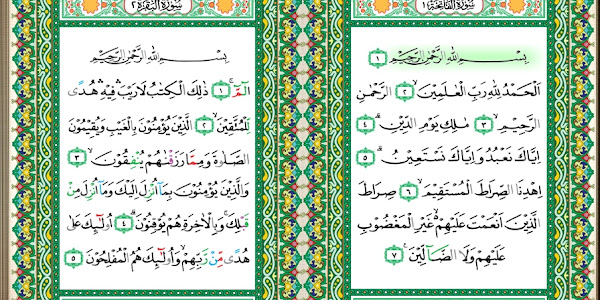 سورة الفاتحة ١
بِسْمِ اللّٰهِ الرَّحْمٰنِ الرَّحِيْمِ ١
اَلْحَمْدُ لِلّٰهِ رَبِّ الْعٰلَمِيْنَۙ ٢ الرَّحْمٰنِ
الرَّحِيْمِۙ ٣ مٰلِكِ يَوْمِ الدِّيْنِۗ ٤
اِيَّاكَ نَعْبُدُ وَاِيَّاكَ نَسْتَعِيْنُۗ ٥
اِهْدِنَا الصِّرَاطَ الْمُسْتَقِيْمَۙ ٦ صِرَاطَ
الَّذِيْنَ اَنْعَمْتَ عَلَيْهِمْ ەۙ غَيْرِ الْمَغْضُوْبِ
عَلَيْهِمْ وَلَا الضَّاۤلِّيْنَ ࣖ ٧
سورة البقرة ٢
بِسْمِ اللّٰهِ الرَّحْمٰنِ الرَّحِيْمِ
الۤمّۤ ۚ ١ ذٰلِكَ الْكِتٰبُ لَا رَيْبَ ۛ فِيْهِ ۛ هُدًى
لِّلْمُتَّقِيْنَۙ ٢ الَّذِيْنَ يُؤْمِنُوْنَ بِالْغَيْبِ وَيُقِيْمُوْنَ
الصَّلٰوةَ وَمِمَّا رَزَقْنٰهُمْ يُنْفِقُوْنَۙ ٣
وَالَّذِيْنَ يُؤْمِنُوْنَ بِمَآ اُنْزِلَ اِلَيْكَ وَمَآ اُنْزِلَ مِنْ
قَبْلِكَۚ وَبِالْاٰخِرَةِ هُمْ يُوْقِنُوْنَۗ ٤ اُولٰۤىِٕكَ عَلٰى
هُدًى مِّنْ رَّبِّهِمْۙ وَاُولٰۤىِٕكَ هُمُ الْمُفْلِحُوْنَ ٥